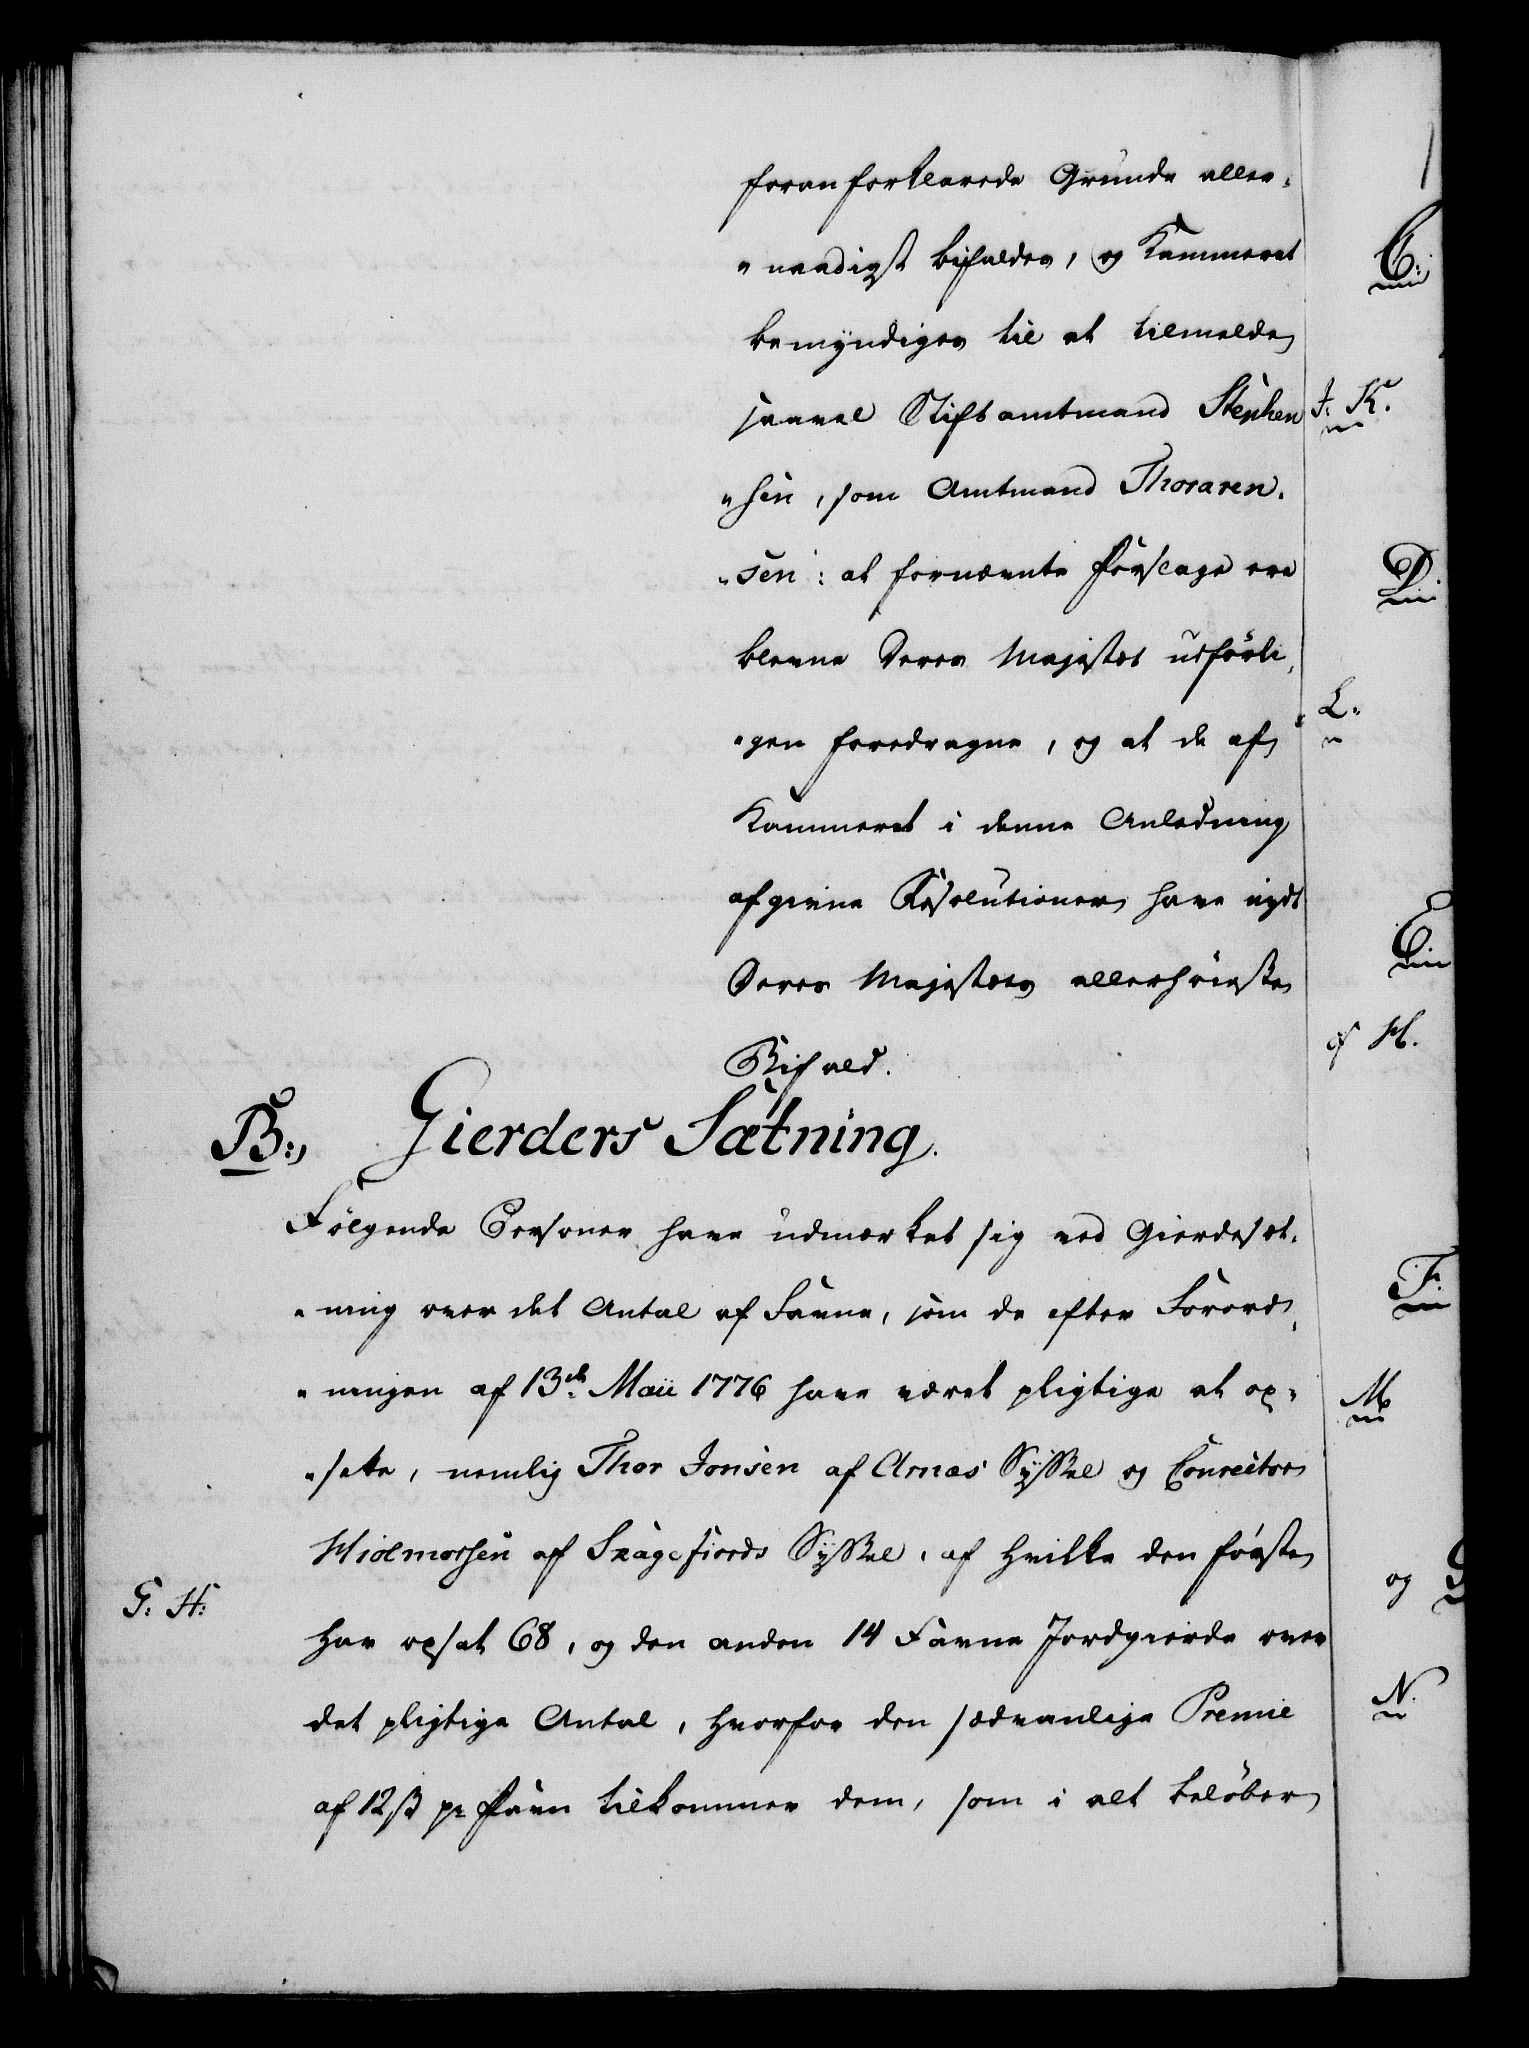 foranforklarede Grunde aller-
"naadigst bifaldes, og Kammeret
bemyndiges til at tilmelde
saavel Stiftamtmand Stephen
"sen, som Amtmand Thoraren-
"sen: at fornævnte Forslage ere
blevne Deres Majestæt udförli-
"gen foredragne, og at de af
Kammeret i denne Anledning
afgivne Resolutioner have nydt
Deres Majestæts allerhöieste
Bifald.
B:, Gierders Sætning.
Fölgende Personer have udmærket sig ved Gierdesæt-
"ning over det Antal af Favne, som de efter Forord-
"ningen af 13de Maii 1776 have været pligtige at op-
"sette, nemlig Thor Jonsen af Arnæs Syssel og Conrector
Hiolmorsen af Skagefiords Syssel, af hvilke den förste
G: H:
har opsat 68, og den anden 14 Favne Jordgierde over
det pligtige Antal, hvorfor den sædvanlige Premie
af 12 ß pr Favn tilkommer dem, som i alt belöber
C:
I: K.
D:
L.
E
af H.
F:
M
og G
N.